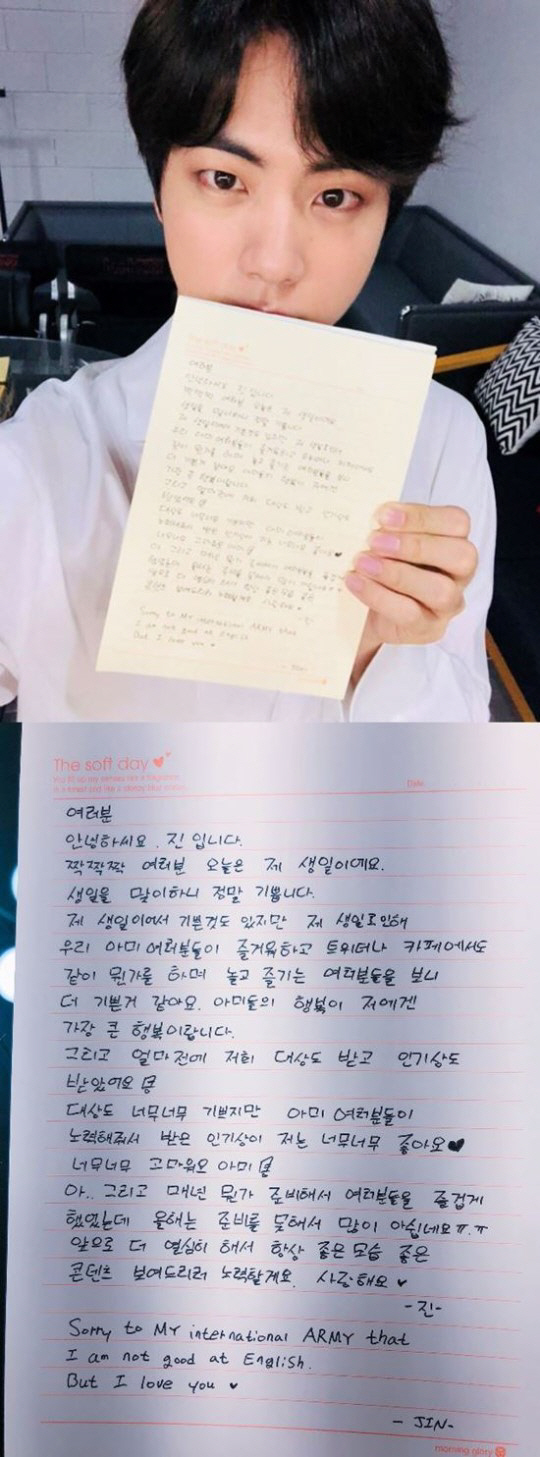 The soft day
Date.
여러분
안녕하세요, 진 입니다.
짝짝짝 여러분 오늘은 제 생일이에요.
생일을 맞이하니 정말 기쁩니다.
제 생일이여서 기쁜것도 있지만 제 생일로인해
우리 아미 여러분들이 즐거워하고 트위터나 카페에서도
같이 뭔가를 하며 놀고 즐기는 여러분들을 보니
더 기쁜거 같아요. 아미들의 행복이 저에겐
가장 큰 행복이랍니다.
그리고 얼마전에 저희 대상도 받고 인기상도
받았어요
대상도 너무너무 기쁘지만 아미 여러분들이
노력해줘서 받은 인기상이 저는 너무너무 좋아요♥
너무너무 고마워요 아미
아.. 그리고 매년 뭔가 준비해서 여러분들을 즐겁게
했었는데 올해는 준비를 못해서 많이 아쉽네요ㅠ.ㅠ
앞으로 더 열심히 해서 항상 좋은모습 좋은
콘텐츠 보여드리려 노력할게요. 사랑해요 ♥
-진-
Sorry to My international ARMY that
I am not good at English.
But I love you ♥
- JIN-
morning glory